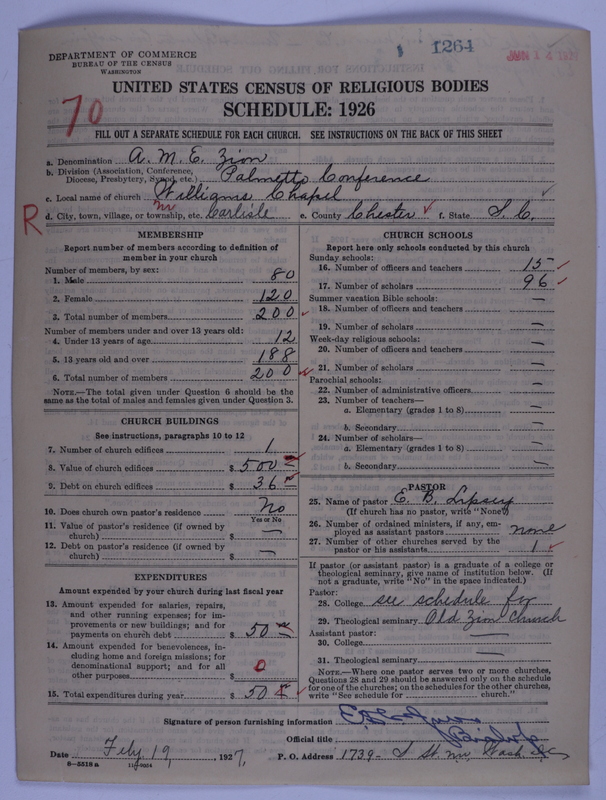 1264
JAN 14 1927
DEPARTMENT OF COMMERCE
BUREAU OF THE CENSUS
WASHINGTON
UNITED STATES CENSUS OF RELIGIOUS BODIES
SCHEDULE: 1926
70
FILL OUT A SEPARATE SCHEDULE FOR EACH CHURCH. SEE INSTRUCTIONS ON THE BACK OF THIS SHEET
a. Denomination A. M. E. Zion
b. Division (Association, Conference, Diocese, Presbytery, Synod, etc.) Palmetto Conference
c. Local name of church Williams Chapel
R d. City, town, village, or township, etc. nr Carlisle e. County Chester f. State S. C.
MEMBERSHIP
Report number of members according to definition of
member in your church
Number of members, by sex:
1. Male 80
2. Female 120
3. Total number of members 200
Number of members under and over 13 years old:
4. Under 13 years of age 12
5. 13 years old and over 188
6. Total number of members 200
NOTE.—The total given under Question 6 should be the
same as the total of males and females given under Question 3.
CHURCH BUILDINGS
See instructions, paragraphs 10 to 12
7. Number of church edifices 1
8. Value of church edifices $ 500
9. Debt on church edifices $ 36
10. Does church own pastor's residence No
Yes or No
11. Value of pastor's residence (if owned by
church) $ —
12. Debt on pastor's residence (if owned by
church) $ —
EXPENDITURES
Amount expended by your church during last fiscal year
13. Amount expended for salaries, repairs,
and other running expenses; for im-
provements or new buildings; and for
payments on church debt $ 50
14. Amount expended for benevolences, in-
cluding home and foreign missions; for
denominational support; and for all
other purposes $ 0
15. Total expenditures during year $ 50
CHURCH SCHOOLS
Report here only schools conducted by this church
Sunday schools:
16. Number of officers and teachers 15
17. Number of scholars 96
Summer vacation Bible schools:
18. Number of officers and teachers —
19. Number of scholars —
Week-day religious schools:
20. Number of officers and teachers —
21. Number of scholars —
Parochial schools:
22. Number of administrative officers —
23. Number of teachers—
a. Elementary (grades 1 to 8) —
b. Secondary —
24. Number of scholars—
a. Elementary (grades 1 to 8) —
b. Secondary —
PASTOR
25. Name of pastor E. B. Lipsey
(If church has no pastor, write "None")
26. Number of ordained ministers, if any, em-
ployed as assistant pastors none
27. Number of other churches served by the
pastor or his assistants 1
If pastor (or assistant pastor) is a graduate of a college or
theological seminary, give name of institution below. (If
not a graduate, write "No" in the space indicated.)
Pastor:
28. College see schedule for
29. Theological seminary Old Zion Church
Assistant pastor:
30. College —
31. Theological seminary —
NOTE.—Where one pastor serves two or more churches,
Questions 28 and 29 should be answered only on the schedule
for one of the churches; on the schedules for the other churches,
write "See schedule for church."
Signature of person furnishing information
Official title Bishop
Date Feby. 19, 1927. P. O. Address 1739 - S St. NW, Wash. D.C.
8—5518 a